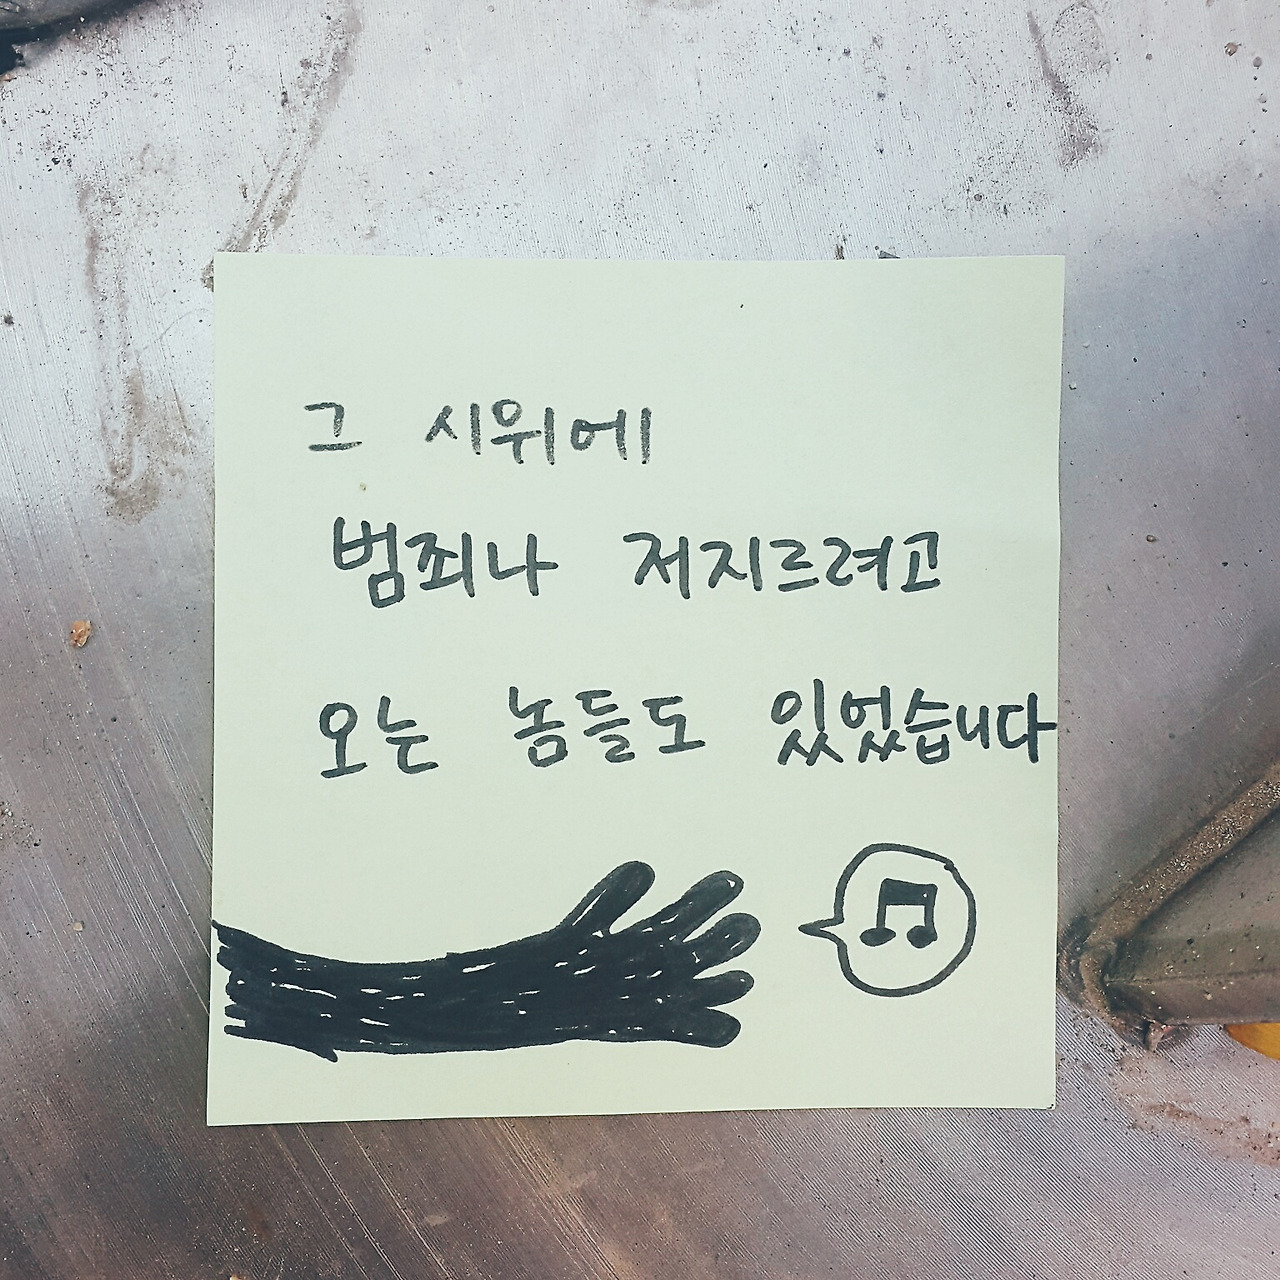 그 시위에
범죄나 저지르려고
오는 놈들도 있었습니다